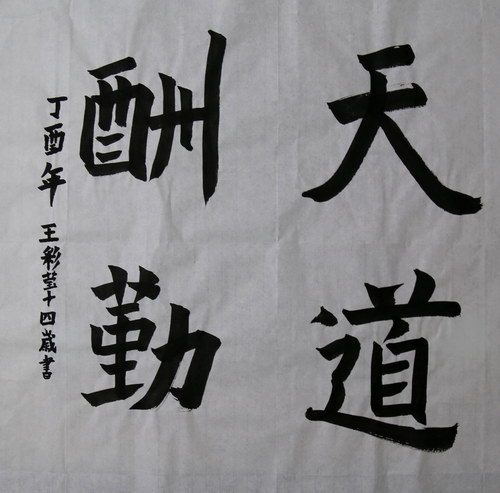 天道
酬勤
丁酉年 王彩莹十四歲書